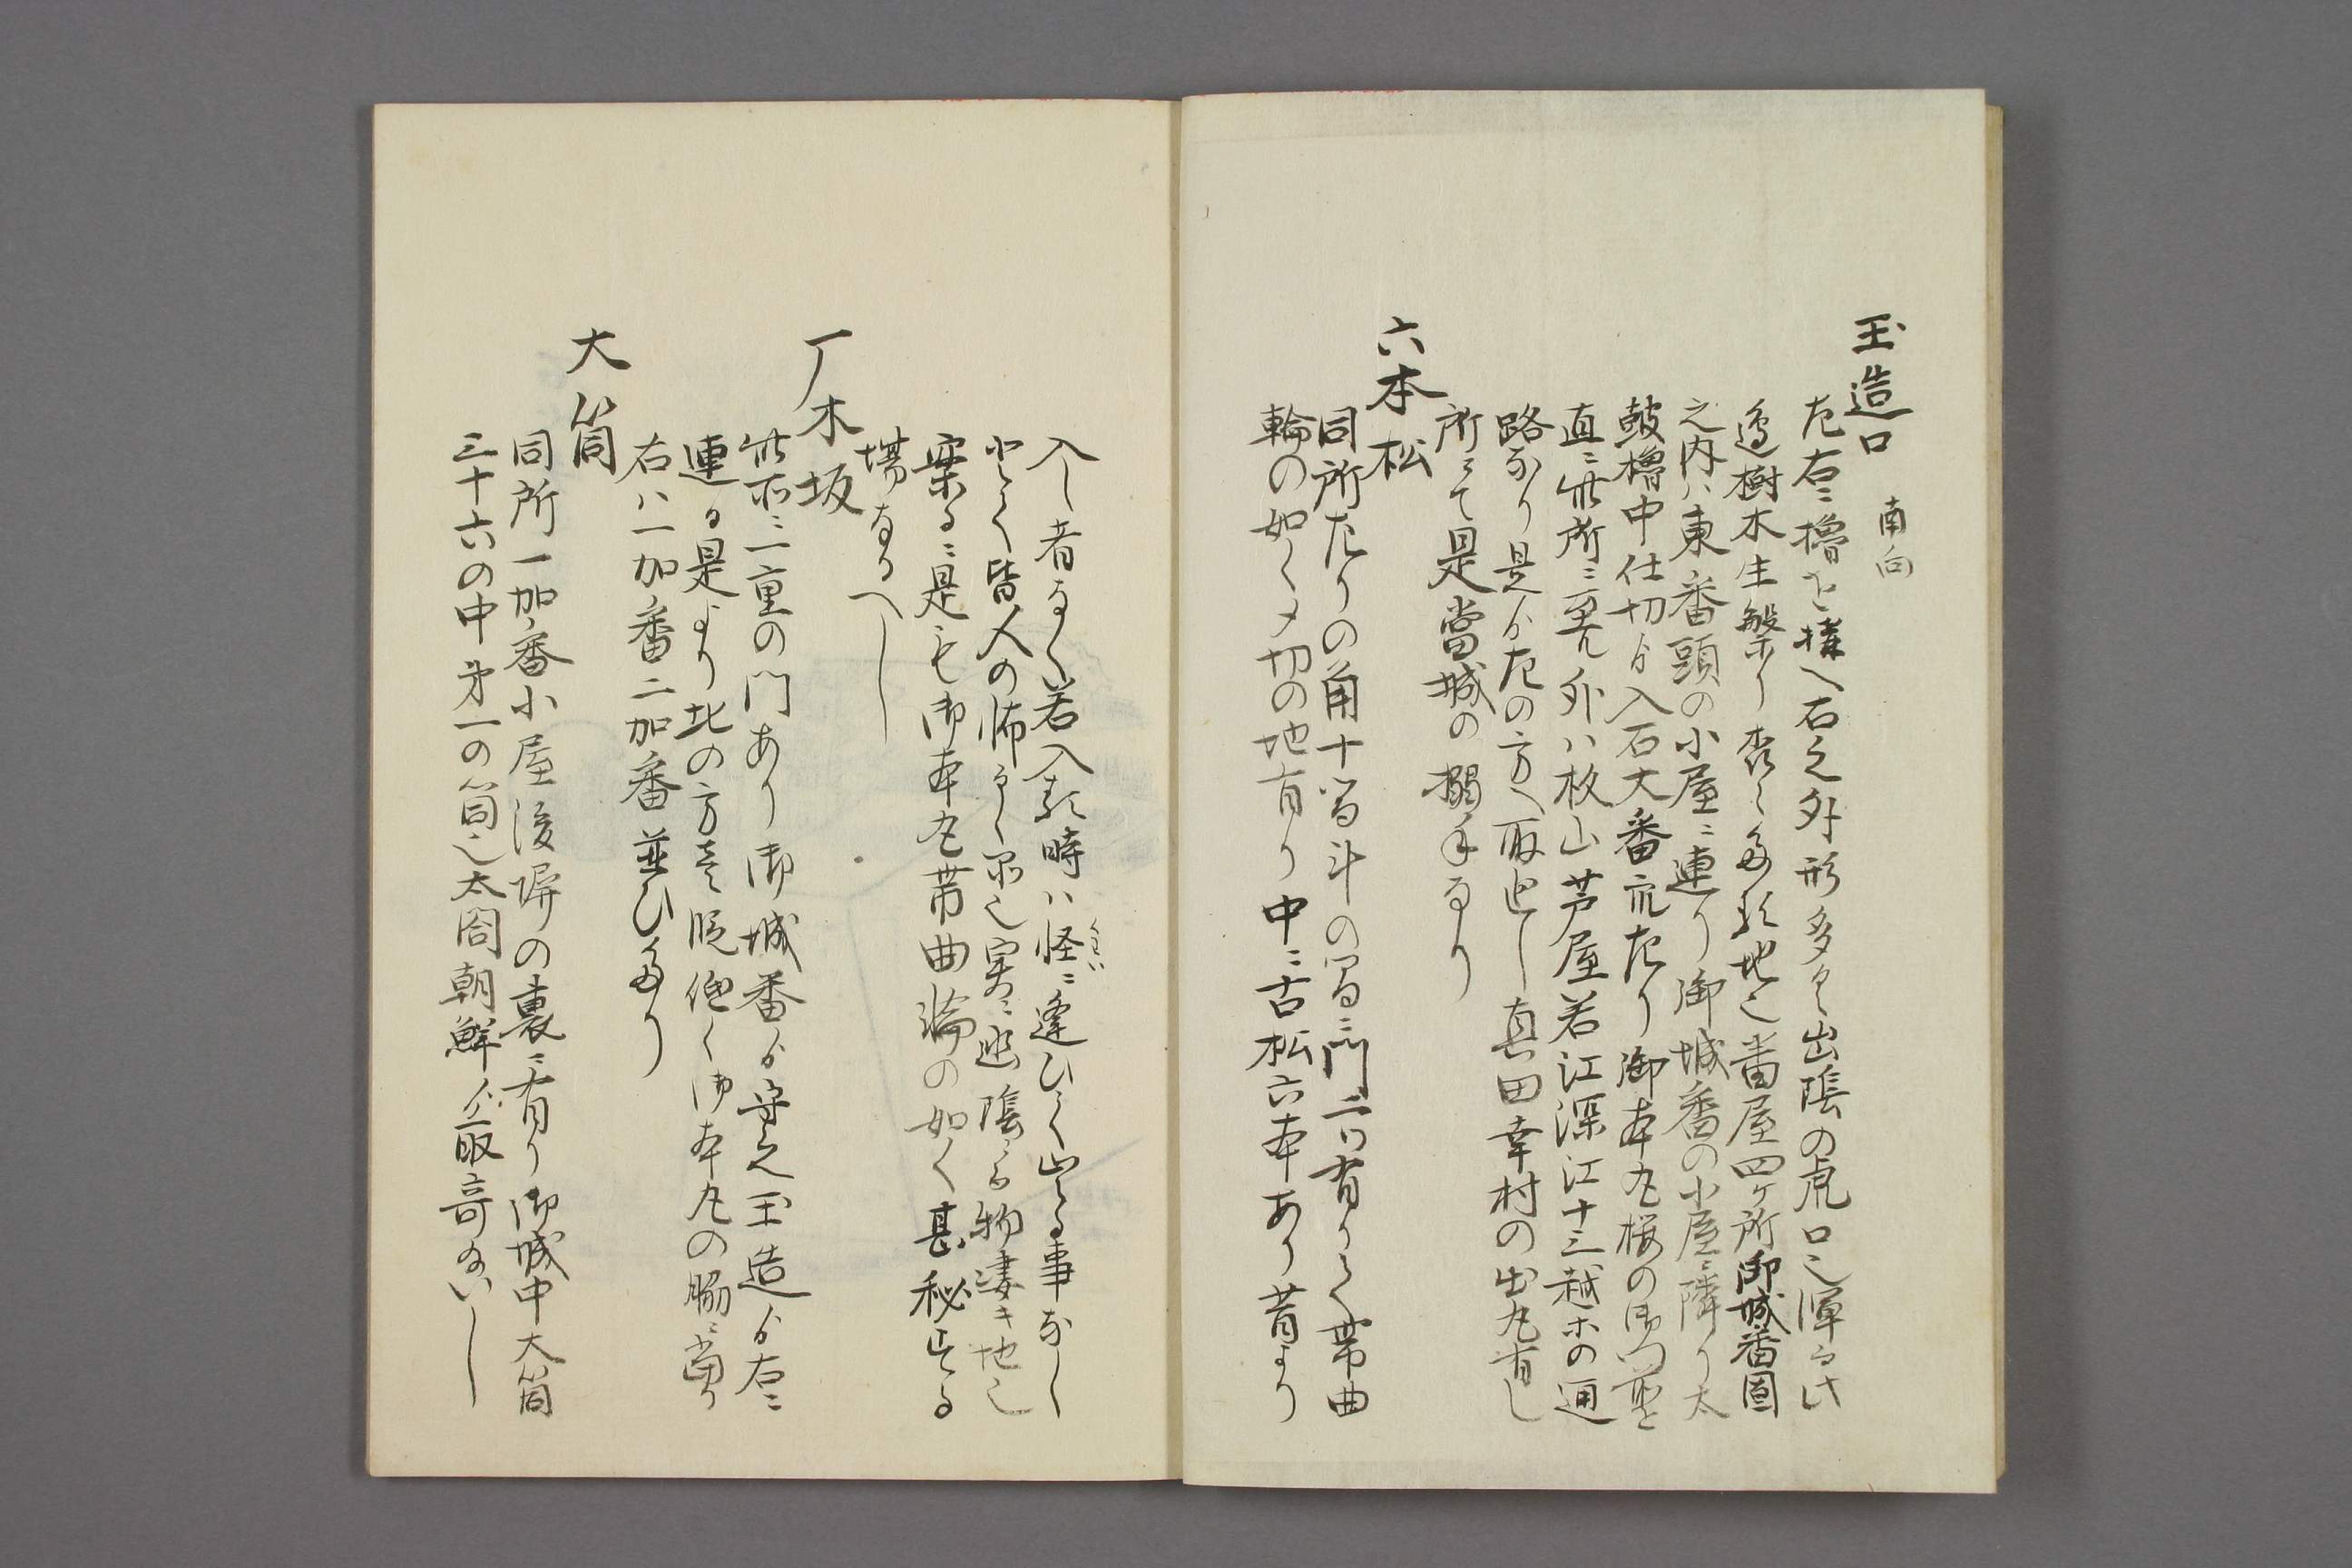 玉造口 南向
左右ニ櫓を構へ右之外形多く山陰の虎口也渾而此
辺樹木生繁り杳々たる地也番屋四ケ所御城番固
之内ハ東番頭の小屋ニ連り御城番の小屋ニ隣り太
鼓櫓中仕切ゟ入右大番前左り御本丸桜の御門前を
直ニ此所ニ至ル外ハ枚山芦屋若江深江十三越ホの通
路なり是ゟ左の方へ取出し真田幸村の出丸有し
所にて是當城の搦手なり
六本松
同所左りの角十間斗の間ニ門二つ有りて帯曲
輪の如く〆切の地有り中ニ古松六本あり昔より
入し者なく若入る時ハ怪ニ逢ひて出る事なし
とて皆人の怖るゝ所也実ニ幽陰なる物凄キ地也
案るニ是も御本丸帯曲輪の如く甚秘する
場なるへし
丁木坂
此所ニ二重の門あり御城番ゟ守之玉造ゟ右ニ
連る是より北の方を低く御本丸の脇ニ當り
右ハ一加番二加番並ひたり
大筒
同所一加番小屋後塀の裏ニ有り御城中大筒
三十六の中第一の筒也太閤朝鮮ゟ取寄給いし